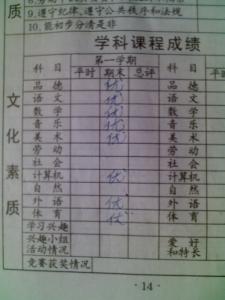 9.遵守纪律,遵守公共秩序和法规
10.能初步分清是非
学科课程成绩
质
文化素质
科目 第一学期 科目
平时 期末 总评
品德 优 品德
语文 优 语文
数学 优 数学
音乐 优 音乐
美术 优 美术
劳动 劳动
社会 社会
计算机 优 计算机
自然 自然
外语 优 外语
体育 优 体育
学习兴趣
兴趣小组活动情况 爱好和特长
竞赛获奖情况
·14·